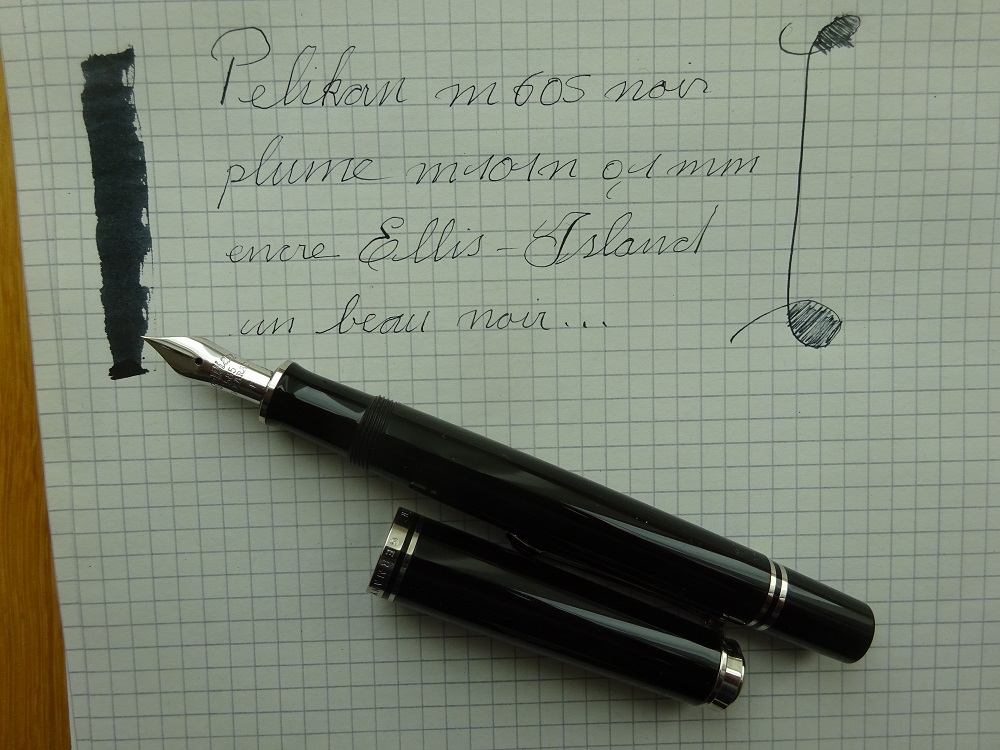 Pelikan m605 noir
plume m101n 0,1 mm
encre Ellis-Island
un beau noir...